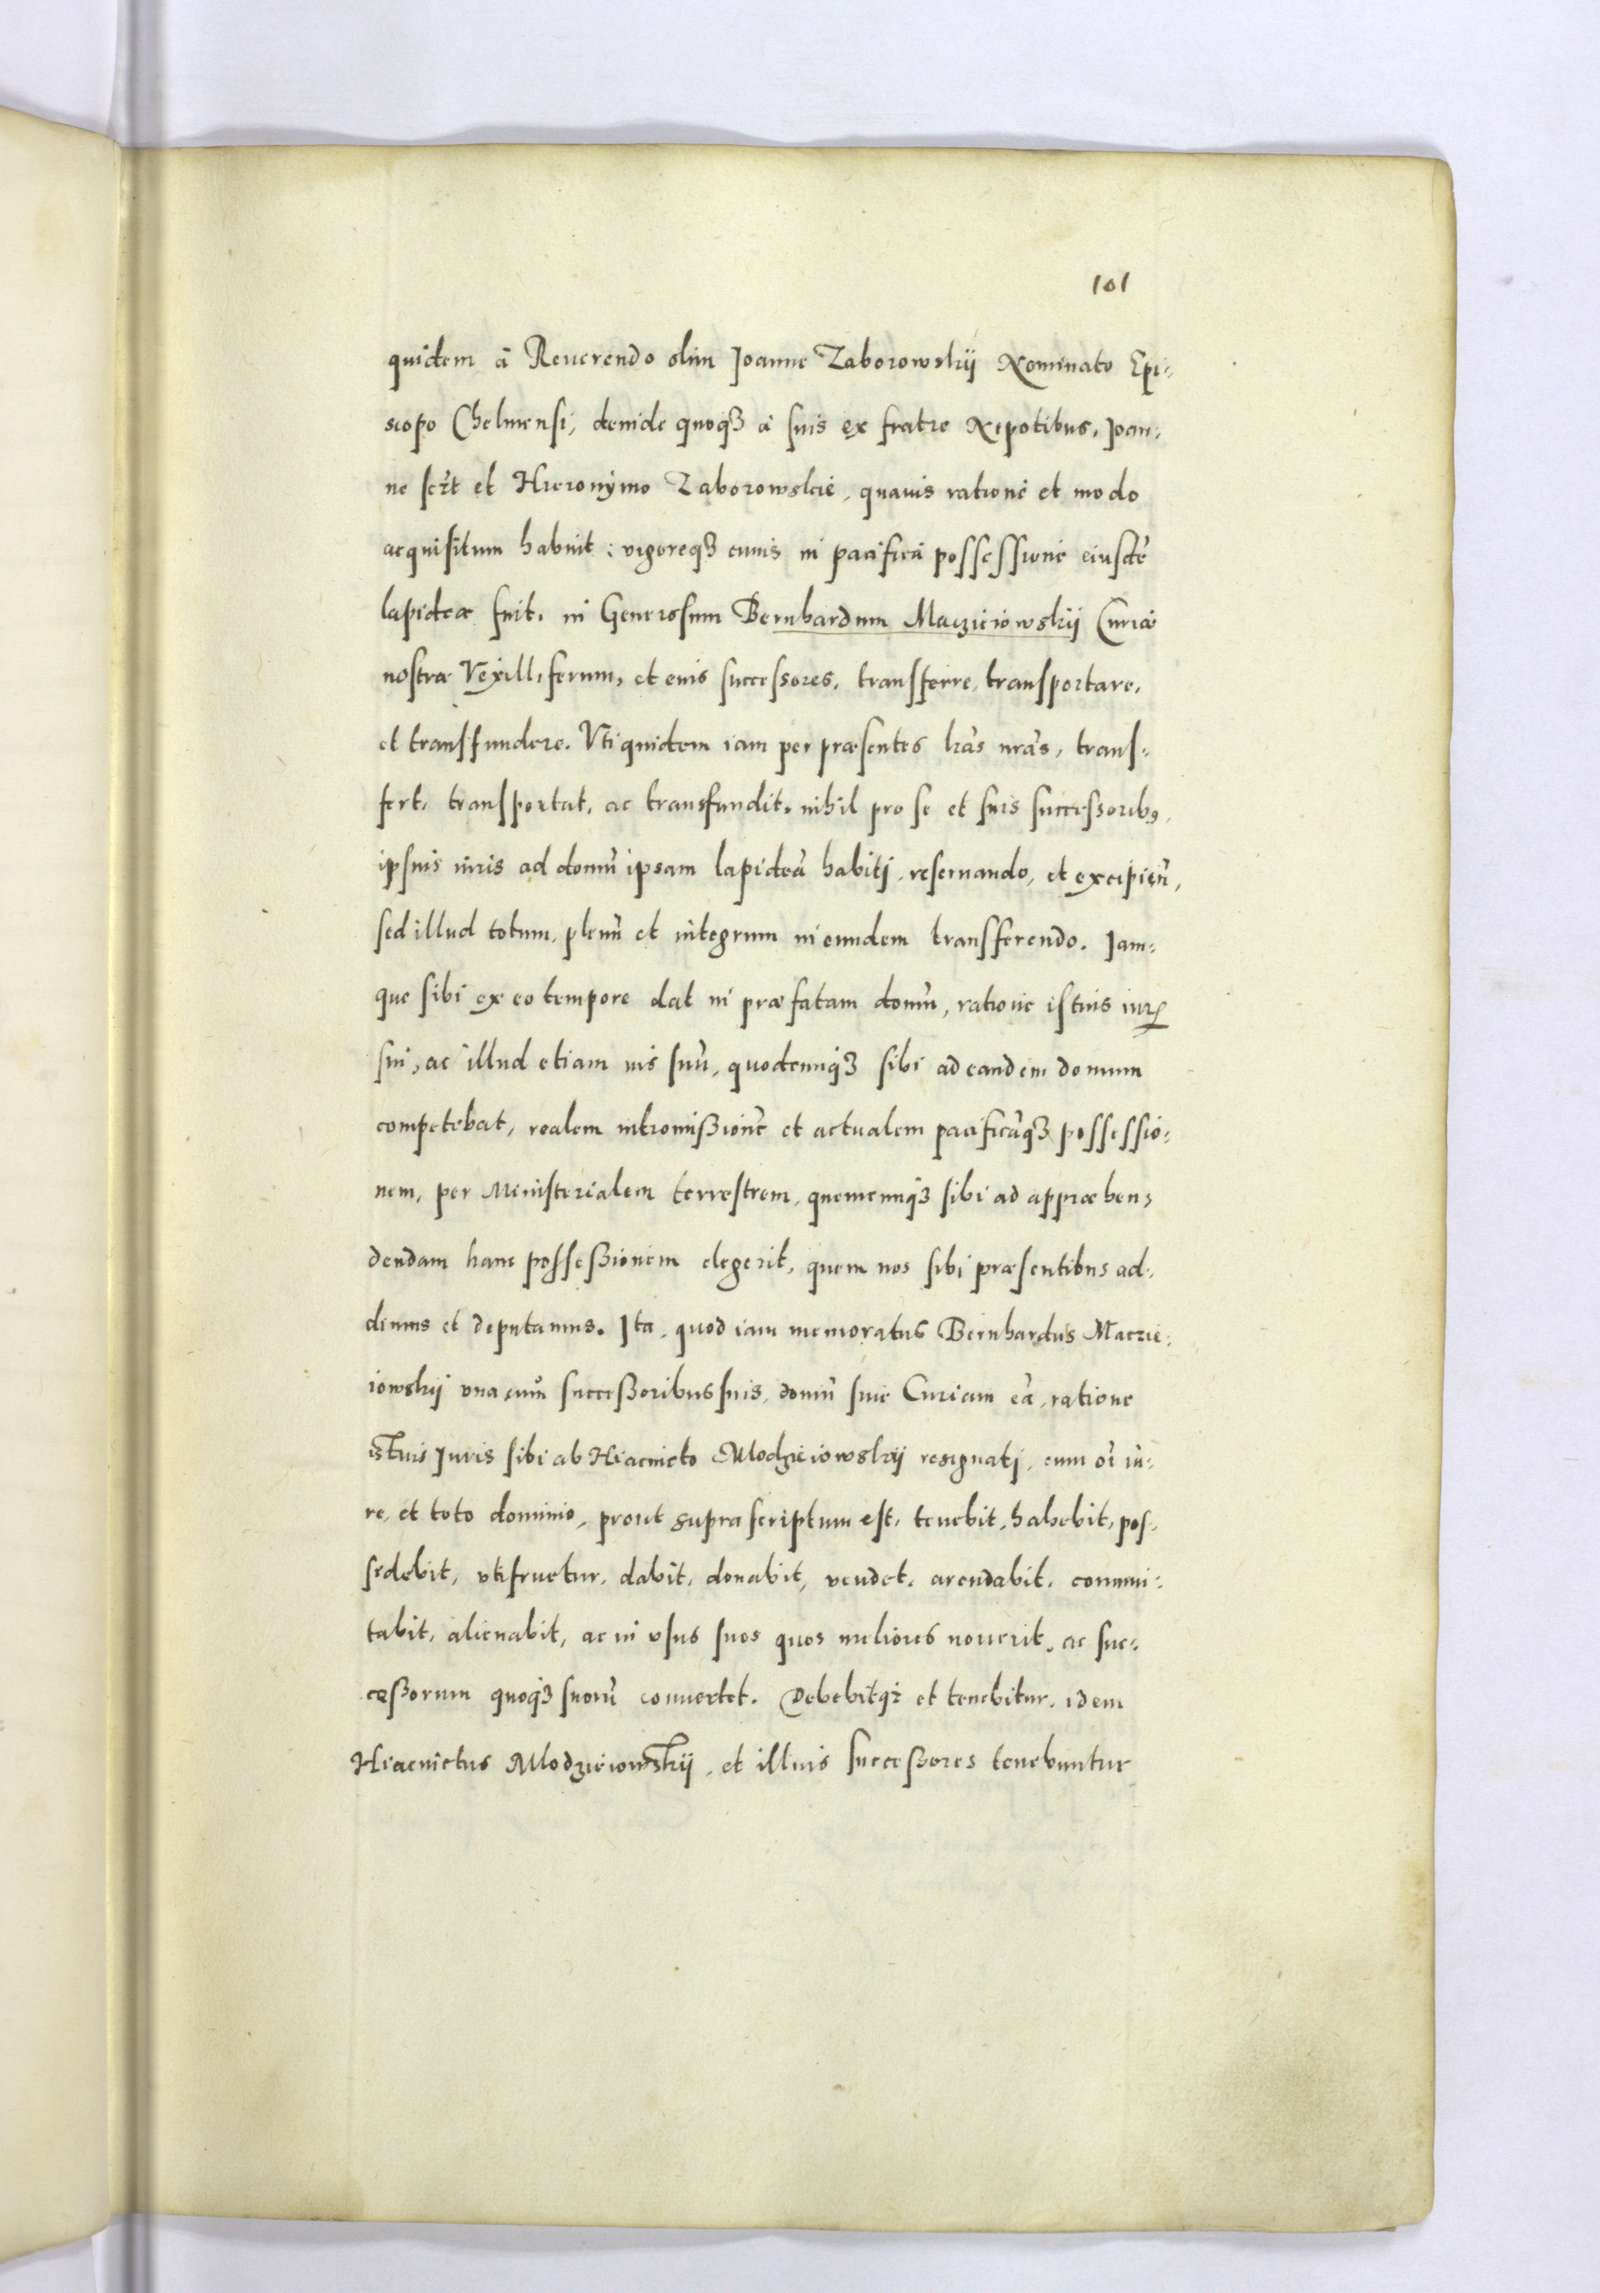 101
quidem à Reuerendo olim Joanne Zaborowskij Nominato Epi-
scopo Chelmensi, deinde quoqȝ à suis ex fratre Nepotibus, Joan-
ne sct et Hieronymo Zaborowskie, quauis ratione et modo
acquisitum habuit: vigoreqȝ cuius in pacifica possessione eiusdē
lapideæ fuit, in Generosum Bernhardum Maczieiowskij Curiæ
nostræ Vexilliferum, et eius successores, transferre, transportare,
et transfundere. Vti quidem iam per præsentes lrās nrās, trans-
fert, transportat, ac transfundit, nihil pro se et suis successoribꝰ,
ipsius iuris ad domū ipsam lapideā habiti, reseruando, et excipien̄,
sed illud totum, plenū et integrum in eundem transferendo. Jam-
que sibi ex eo tempore dat in præfatam domū, ratione istius iurꝭ
sui, ac illud etiam ius suū, quodcunqȝ sibi ad eandem domum
competebat, realem intromißionē et actualem pacificāqȝ possessio-
nem, per Ministerialem terrestrem, quemcunqȝ sibi ad appræhen-
dendam hanc posseßionem elegerit, quem nos sibi præsentibus ad-
dimus et deputamus. Ita, quod iam memoratus Bernhardus Maczie-
iowskij vna cum succeßoribus suis, domū siue Curiam eā, ratione
istius Juris sibi ab Hiacincto Mlodzieiowskij resignati, cum oī iu-
re, et toto dominio, prout supra scriptum est, tenebit, habebit, pos-
sidebit, vtifruetur, dabit, donabit, vendet, arendabit, commu-
tabit, alienabit, ac in vsus suos quos meliores nouerit, ac suc-
ceßorum quoqȝ suorū conuertet. Debebitqȝ et tenebitur, idem
Hiacinctus Mlodzieiowskij, et illius succeßores tenebuntur